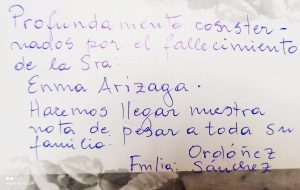 Profundamente conster-
nados por el fallecimiento
de la Sra:
Enma Arizaga.
Hacemos llegar nuestra
nota de pesar a toda su
familia.
Ordóñez
Fmlia: Sánchez